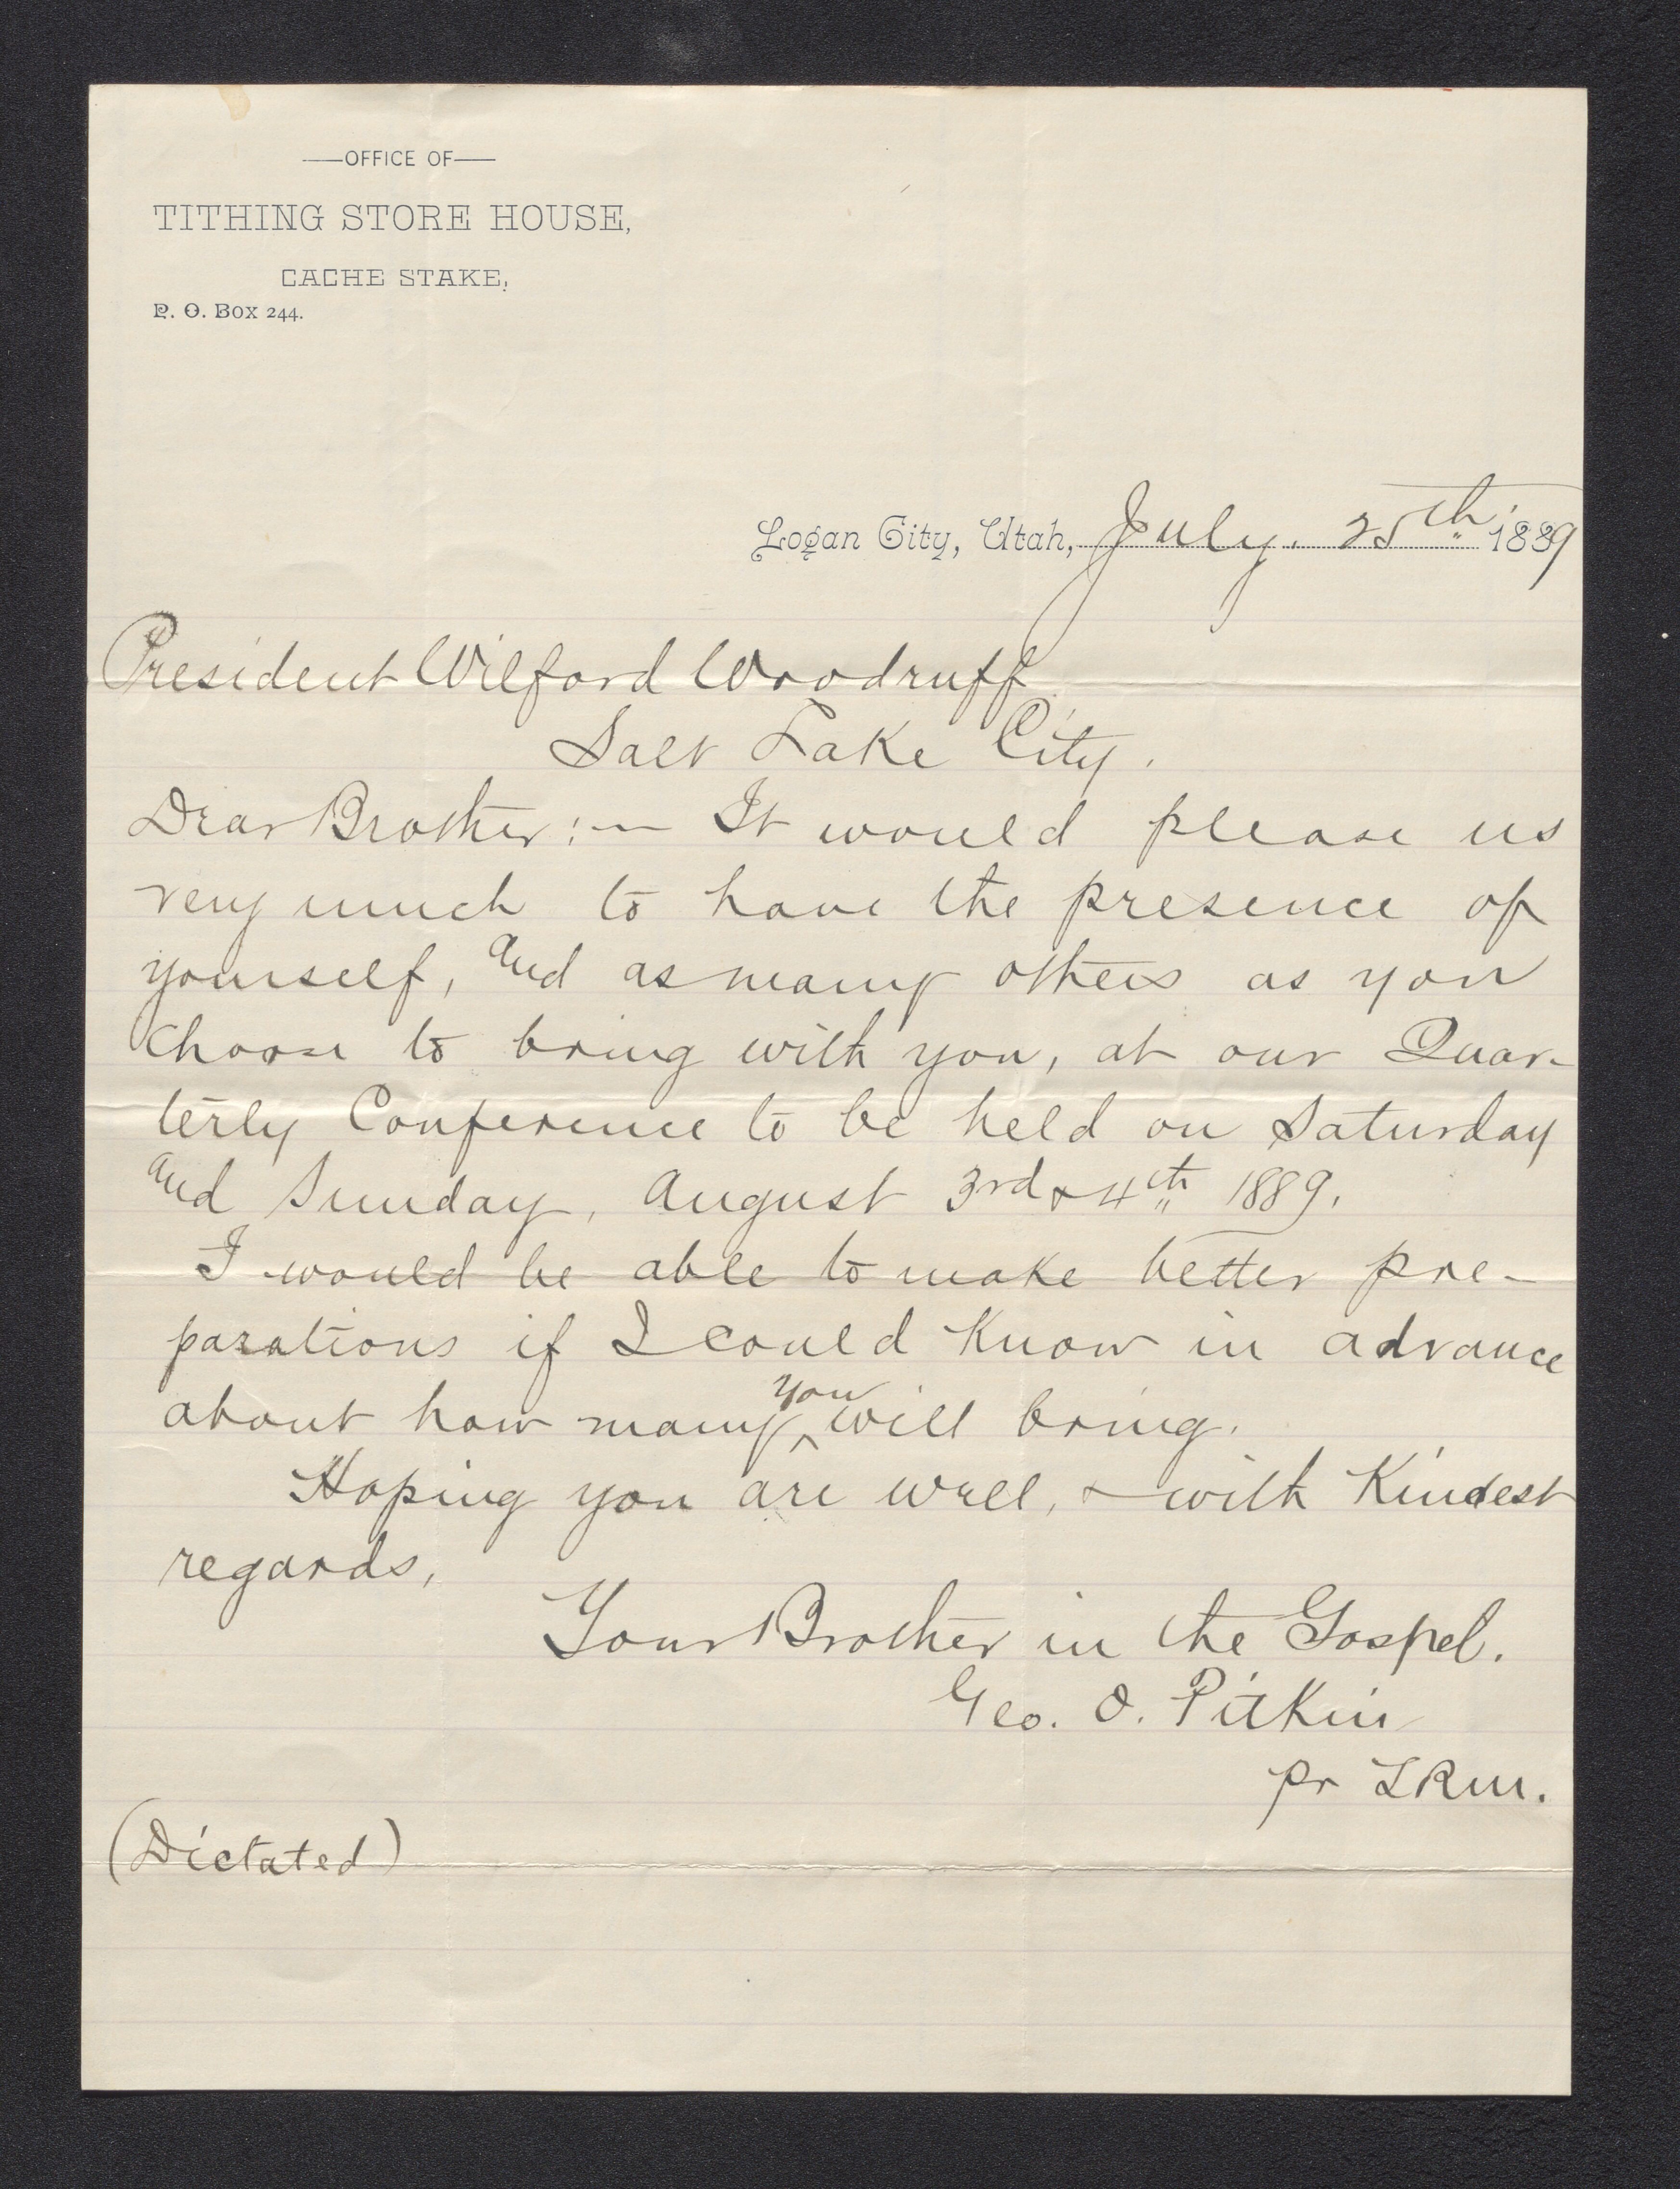 —OFFICE OF—
TITHING STORE HOUSE,
CACHE STAKE,
P. O. BOX 244.
Logan City, Utah, July. 25th 1889
President Wilford Woodruff
Salt Lake City.
Dear Brother:— It would please us
very much to have the presence of
yourself, and as many others as you
choose to bring with you, at our Quar-
terly Conference to be held on Saturday
and Sunday, August 3rd & 4th 1889.
I would be able to make better pre-
parations if I could know in advance
about how many you will bring.
Hoping you are well, & with Kindest
regards,
Your Brother in the Gospel.
Geo. O. Pitkin
pr LRM.
(Dictated)